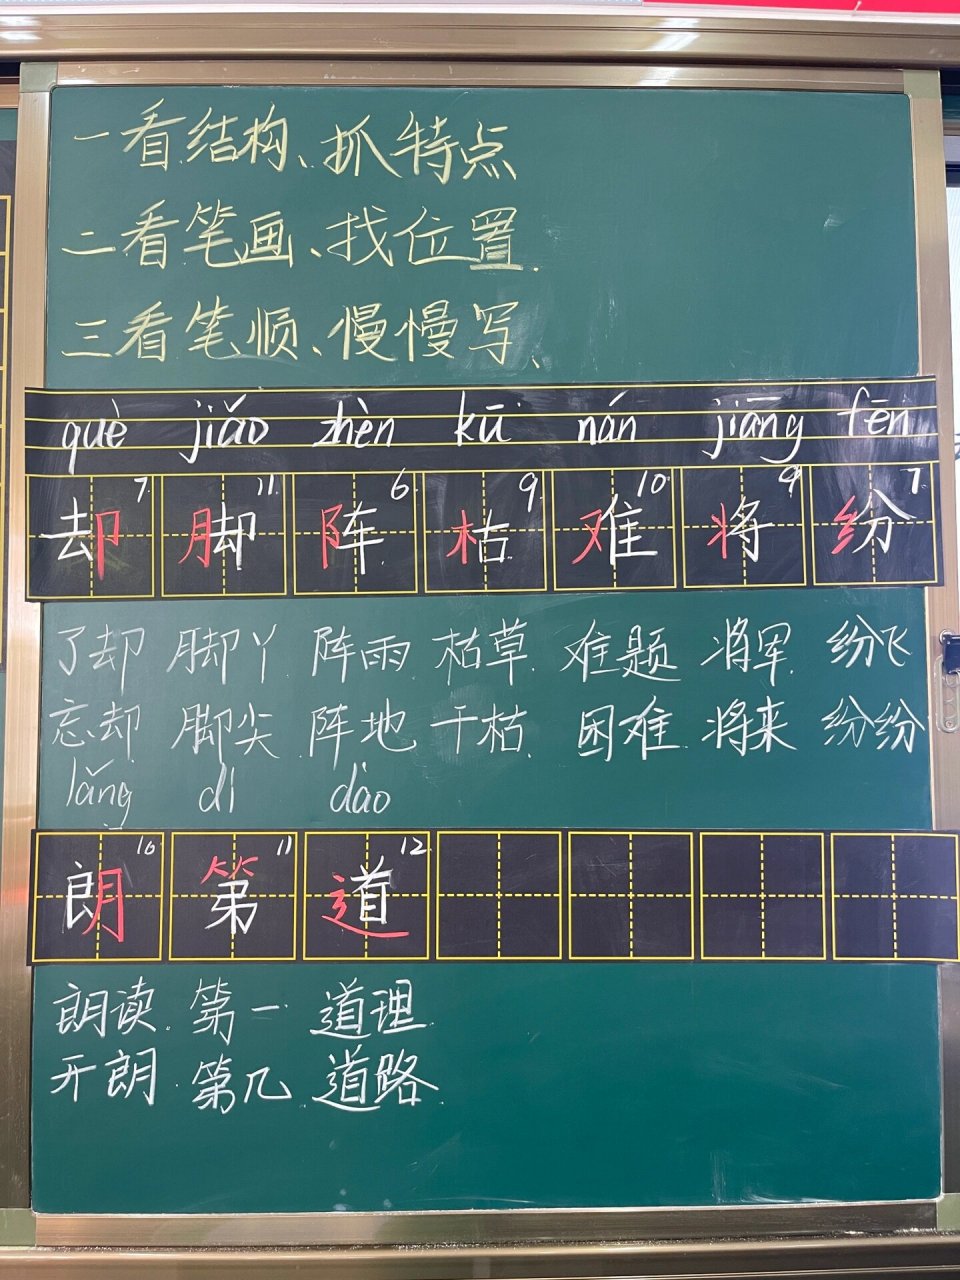 一看结构、抓特点
二看笔画、找位置.
三看笔顺、慢慢写、
què jiǎo zhèn kū nán jiāng fēn
7. 11. 6 9 10 9 7.
却 脚 阵 枯 难 将 纷
了却 脚丫 阵雨 枯草 难题 将军 纷飞
忘却 脚尖 阵地 干枯 困难 将来 纷纷
lǎng dì dào
10 11 12
朗 第 道
朗读 第一 道理
开朗 第几 道路